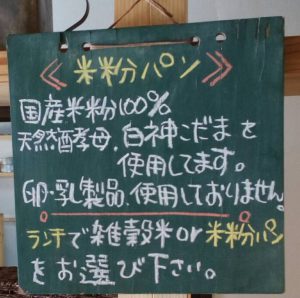 《米粉パン》
国産米粉100%
天然酒孝母.白神こだまを
使用してます。
卵・乳製品.使用しておりません。
ランチで雑穀米or米粉パン
をお選び下さい。